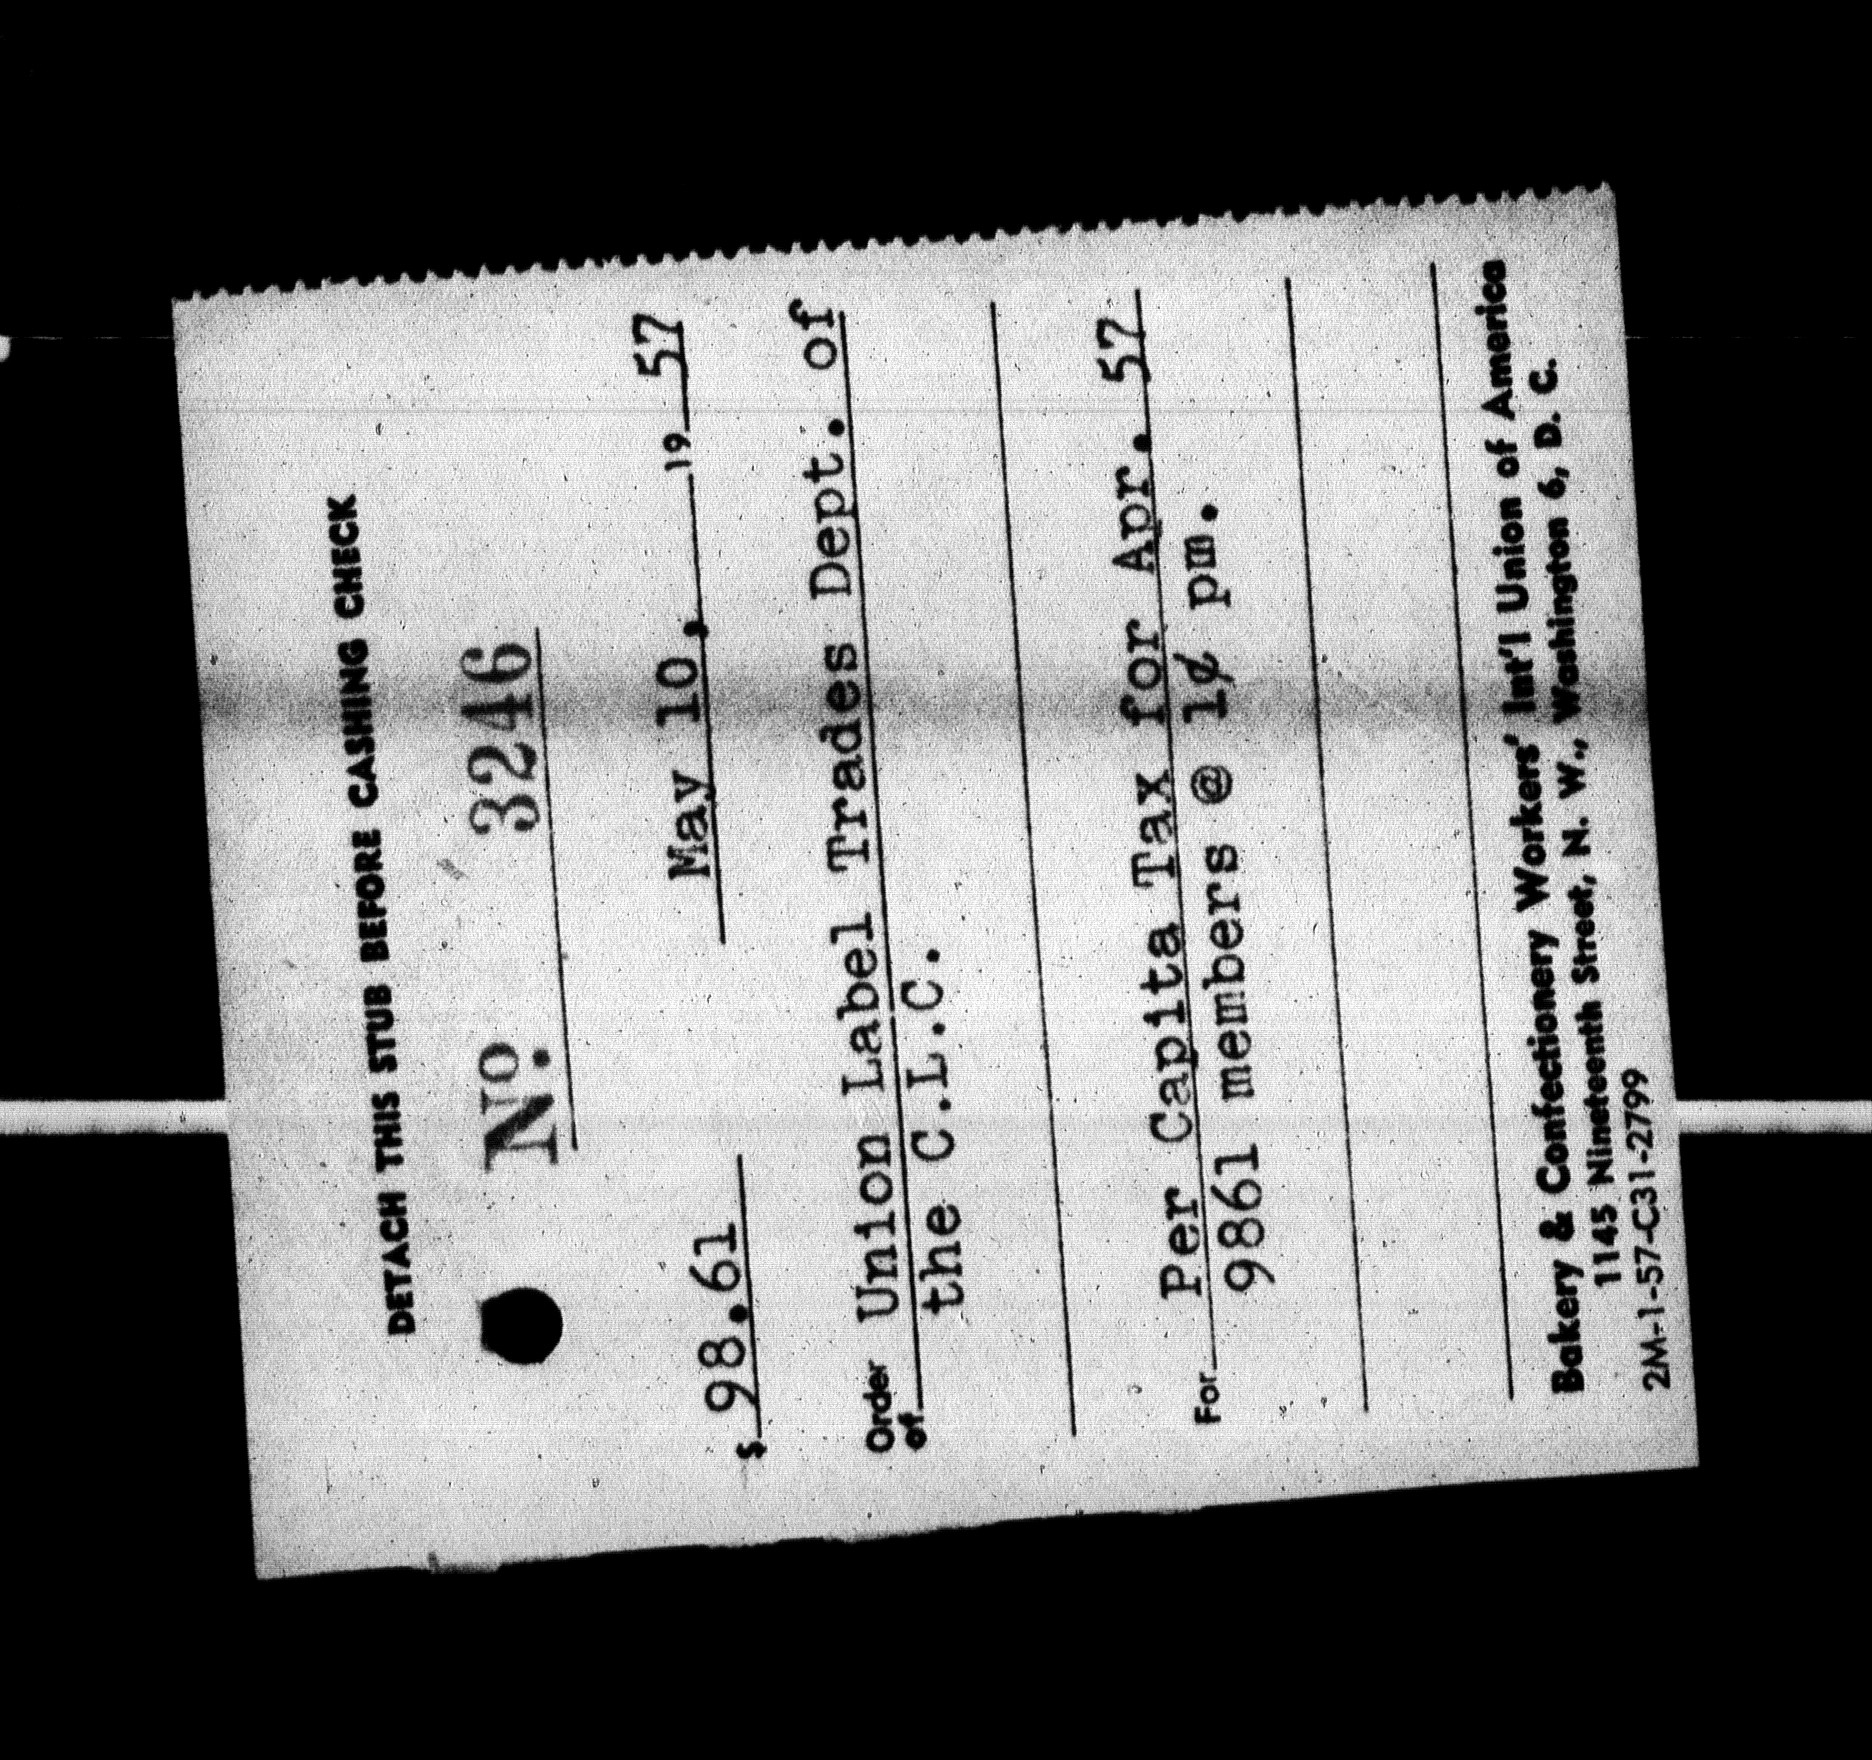 DETACH THIS STUB BEFORE CASHING CHECK
Nº. 3246
$ 98.61 May 10, 19 57
Order of Union Label Trades Dept. of
the C.L.C.
For Per Capita Tax for Apr. 57
9861 members @ 1¢ pm.
Bakery & Confectionery Workers' Int'l Union of America
1145 Nineteenth Street, N. W., Washington 6, D. C.
2M-1-57-C31-2799